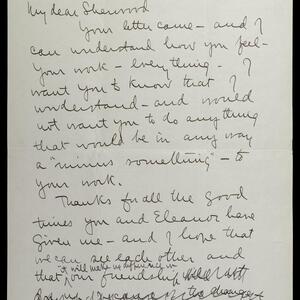 My dear Sherwood
Your letter came - and I
can understand how you feel -
your work - everything - I
want you to know that I
understand - and would
not want you to do anything
that would be in any way
a "minus something" - to
your work.
Thanks for all the good
times you and Eleanor have
given me - and I hope that
we can see each other and
it will make no difference in
that our friendship